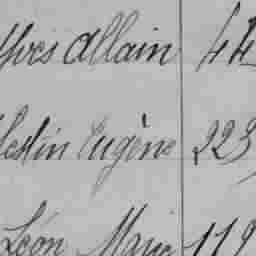 Yves Allain 44
lestin Eugène 223
Léon Marie 119